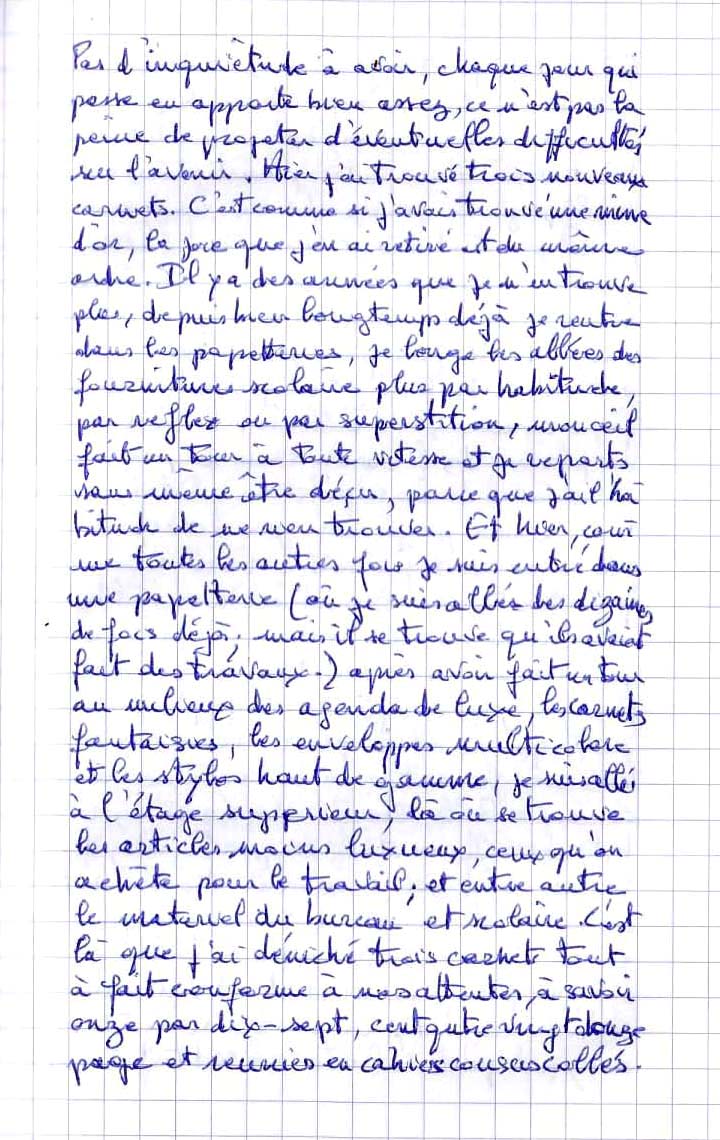 Pas d'inquiétude à avoir, chaque jour qui
passe en apporte bien assez, ce n'est pas la
peine de projeter d'éventuelles difficultés
sur l'avenir. Hier j'ai trouvé trois nouveaux
carnets. C'est comme si j'avais trouvé une mine
d'or, la joie que j'en ai retiré est du même
ordre. Il y a des années que je n'en trouve
plus, depuis bien longtemps déjà je rentre
dans les papetteries, je longe les allées des
fournitures scolaire plus par habitude,
par reflex ou par superstition, mon œil
fait un tour à toute vitesse et je reparts
sans même être déçu, parce que j'ai l'ha
bitude de ne rien trouver. Et hier, com
me toutes les autres fois je suis entré dans
une papetterie (où je suis allés des dizaines
de fois déjà, mais il se trouve qu'ils avaient
fait des travaux.) après avoir fait un tour
au milieux des agenda de luxe, les carnets
fantaisies, les enveloppes multicolore
et les stylos haut de gamme, je suis allé
à l'étage superieur, là où se trouve
les articles moins luxueux, ceux qu'on
achète pour le travail, et entre autre
le materiel du bureau et scolaire. C'est
là que j'ai déniché trois carnets tout
à fait conforme à mes attentes, à savoir
onze par dix-sept, cent qutre vingt douze
page et reunies en cahiers cousus collés.